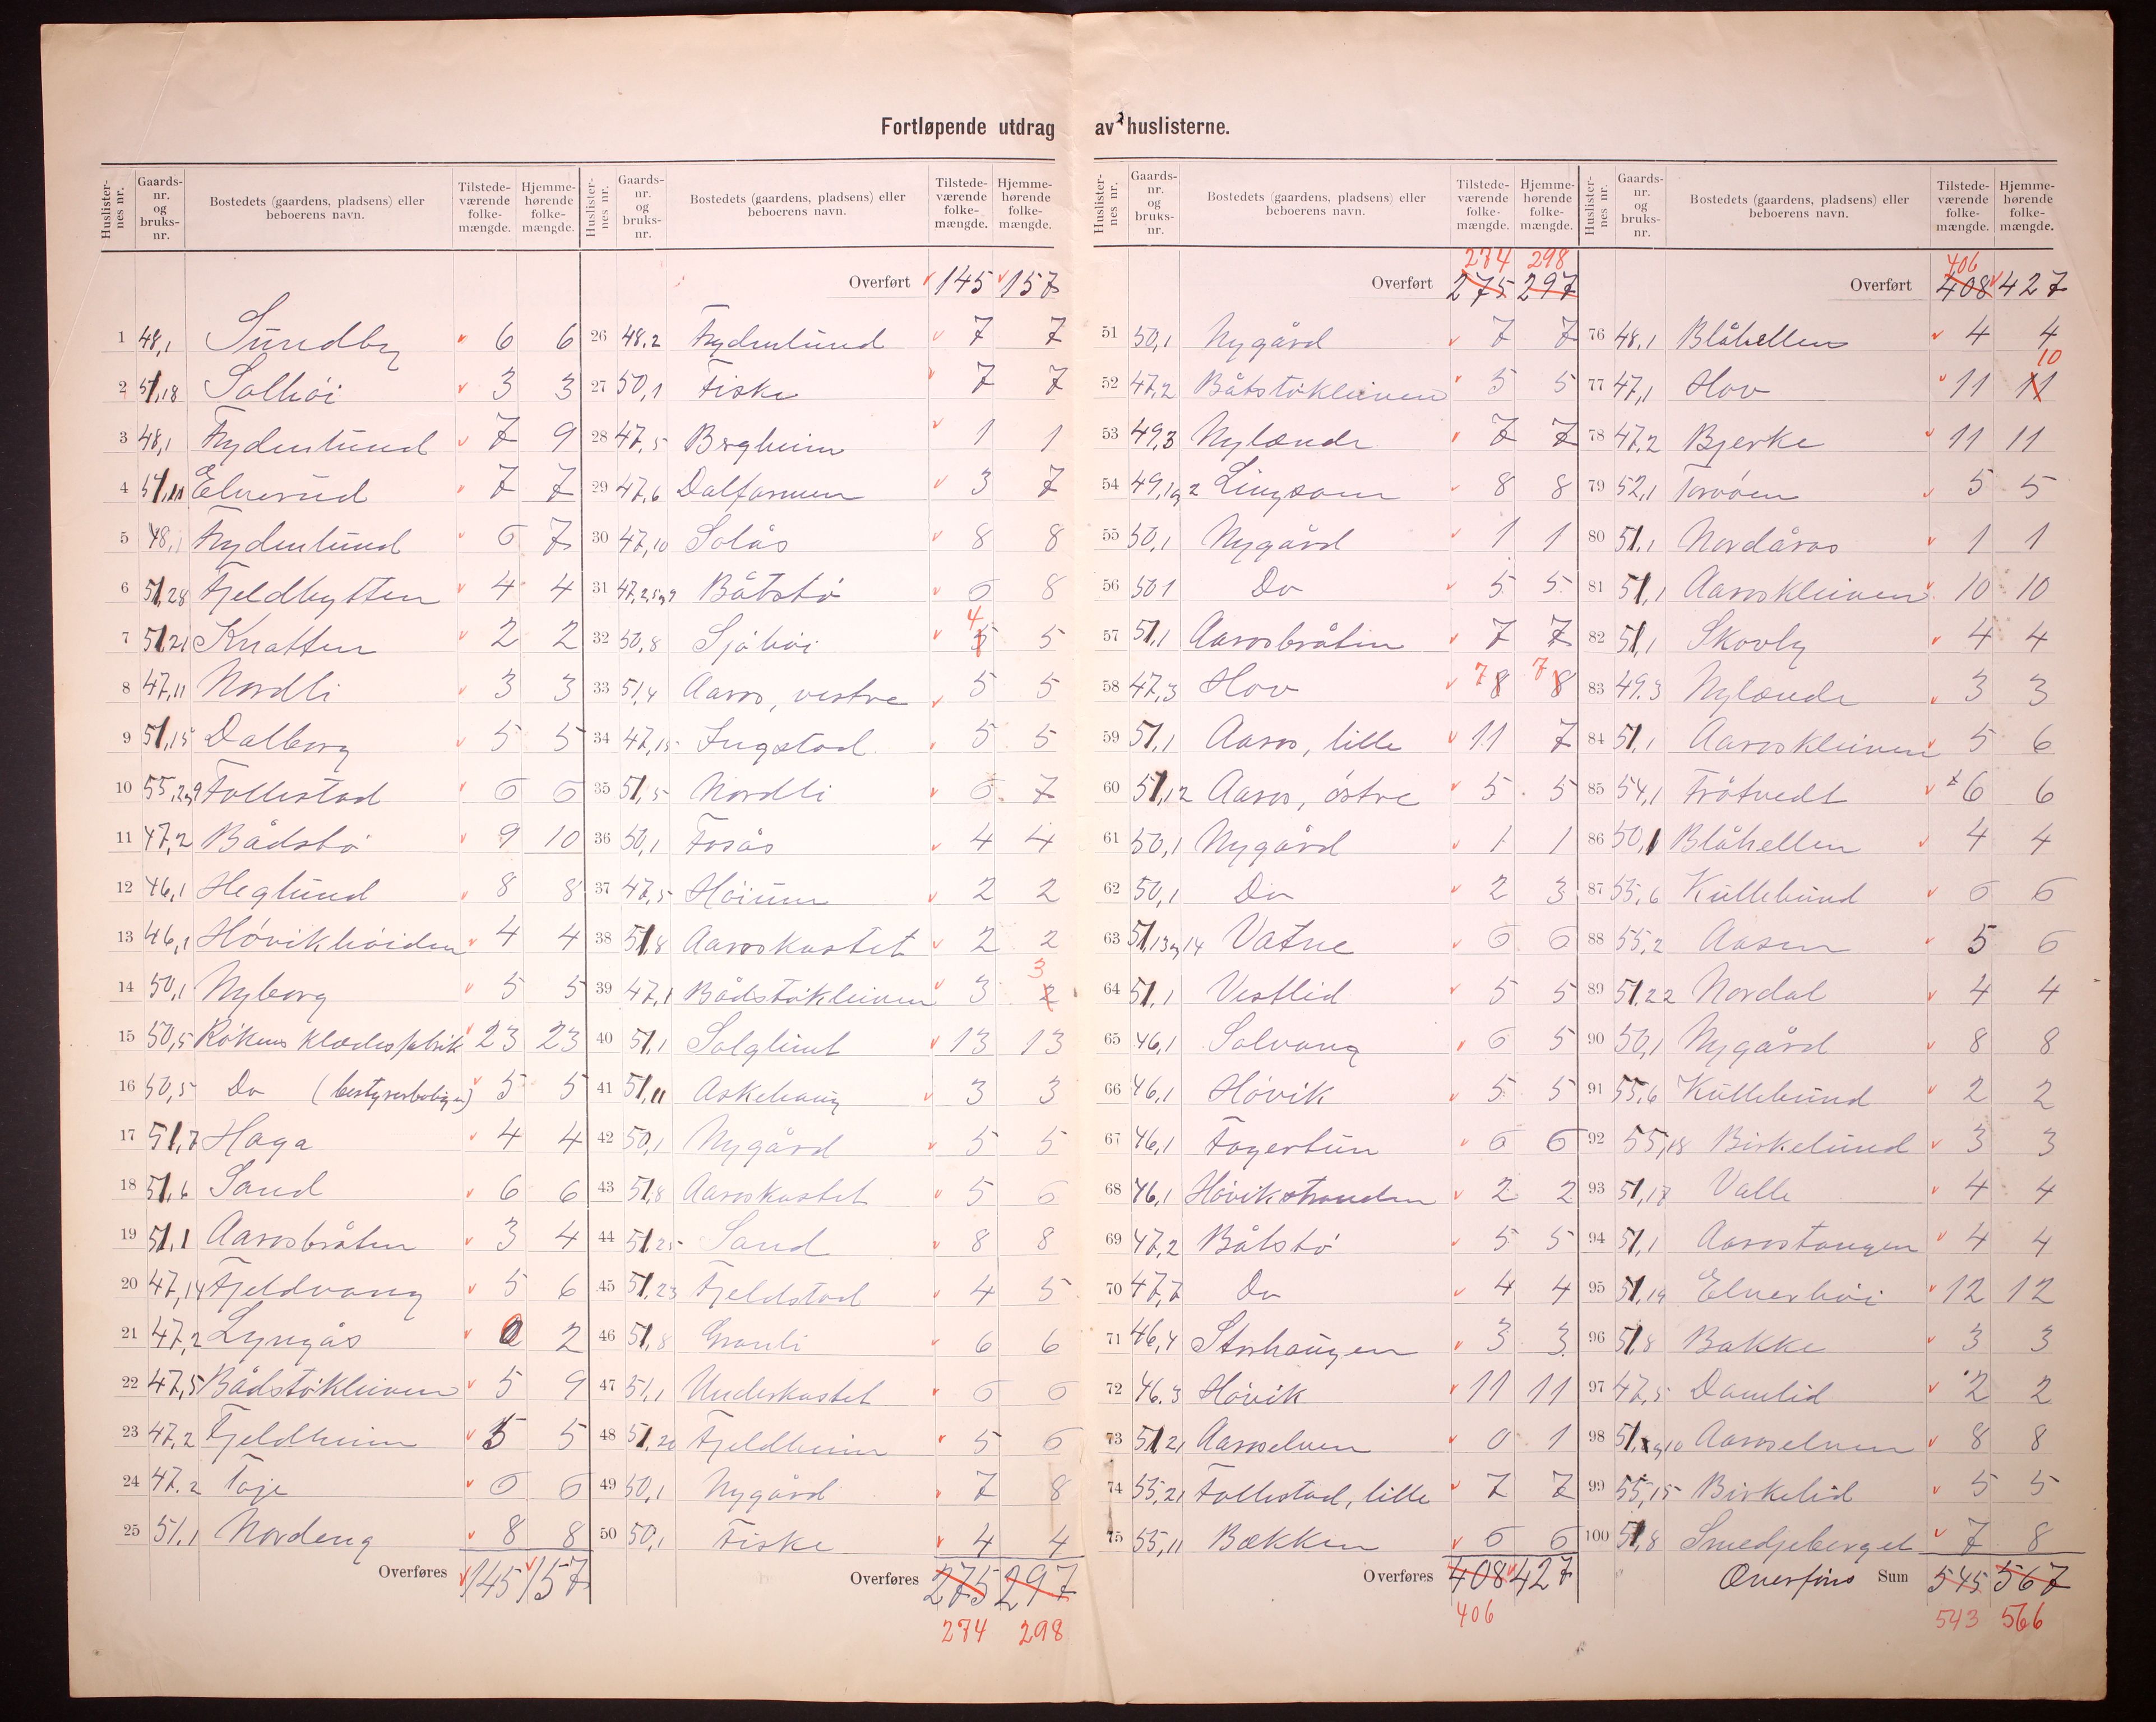 Fortløpende utdrag av huslisterne.
Huslisternes nr. Gaards-nr. og bruks-nr. Bostedets (gaardens, pladsens) eller beboerens navn. Tilstedeværende folkemængde. Hjemmehørende folkemængde.
1 48,1 Sundby 6 6
2 51,18 Solhöi 3 3
3 48,1 Frydenlund 7 9
4 Elverud 7 7
5 48,1 Frydenlund 6 7
6 51,28 Fjeldhytten 4 4
7 51,21 Knatten 2 2
8 47,11 Nordli 3 3
9 51,15 Dalborg 5 5
10 55,2og9 Follestad 6 6
11 47,2 Bådstö 9 10
12 46,1 Heglund 8 8
13 46,1 Hövikhöiden 4 4
14 50,1 Nyborg 5 5
15 50,5 Rökens klædesfabrik 23 23
16 50,5 Do (bestyrerboligen) 5 5
17 51,7 Haga 4 4
18 51,6 Sand 6 6
19 51,1 Aarosbråten 3 4
20 47,14 Fjeldvang 5 6
21 47,2 Lyngås 2
22 47,5 Bådstökleiven 5 9
23 47,2 Fjeldheim 5 5
24 47,2 Toje 6 6
25 51,1 Nordeng 8 8
Overføres 145 157
Huslisternes nr. Gaards-nr. og bruks-nr. Bostedets (gaardens, pladsens) eller beboerens navn. Tilstedeværende folkemængde. Hjemmehørende folkemængde.
Overført 145 157
26 48,2 Frydenlund 7 7
27 50,1 Fiske 7 7
28 47,5 Bergheim 1 1
29 47,6 Dalfarmen 3 7
30 47,10 Solås 8 8
31 47,2,5og9 Båtstö 6 8
32 50,8 Sjöhöi 5 4 5
33 51,4 Aaros, vestre 5 5
34 47,15 Ingstad 5 5
35 51,5 Nordli 6 7
36 50,1 Fosås 4 4
37 47,5 Höium 2 2
38 51,8 Aaroskastet 2 2
39 47,1 Bådstökleiven 3 2 3
40 51,1 Solglimt 13 13
41 51,11 Askehaug 3 3
42 50,1 Nygård 5 5
43 51,8 Aaroskastet 5 6
44 51,25 Sand 8 8
45 51,23 Fjeldstad 4 5
46 51,8 Granli 6 6
47 51,1 Underkastet 6 6
48 51,20 Fjeldheim 5 6
49 50,1 Nygård 7 8
50 50,1 Fiske 4 4
Overføres 275 297
274 298
Huslisternes nr. Gaards-nr. og bruks-nr. Bostedets (gaardens, pladsens) eller beboerens navn. Tilstedeværende folkemængde. Hjemmehørende folkemængde.
274 298
Overført 275 297
51 50,1 Nygård 7 7
52 47,2 Båtstökleiven 5 5
53 49,3 Nylænde 7 7
54 49,1og2 Lingsom 8 8
55 50,1 Nygård 1 1
56 50 1 Do 5 5
57 51,1 Aarosbråten 7 7
58 47,3 Hov 7 8 7 8
59 51,1 Aaros, lille 11 7
60 51,12 Aaros, östre 5 5
61 50,1 Nygård 1 1
62 50,1 Do 2 3
63 51,13og14 Vatne 6 6
64 51,1 Vestlid 5 5
65 46,1 Solvang 6 5
66 46,1 Hövik 5 5
67 46,1 Fagertun 6 6
68 46,1 Hövikstranden 2 2
69 47,2 Båtstö 5 5
70 47,7 Do 4 4
71 46,4 Storhaugen 3 3
72 46,3 Hövik 11 11
73 51 21 Aaroselven 0 1
74 55,21 Follestad, lille 7 7
75 55,11 Bækken 6 6
Overføres 408 427
406
Huslisternes nr. Gaards-nr. og bruks-nr. Bostedets (gaardens, pladsens) eller beboerens navn. Tilstedeværende folkemængde. Hjemmehørende folkemængde.
406
Overført 408 427
76 48,1 Blåhellen 4 4
77 47,1 Hov 11 11 10
78 47,2 Bjerke 11 11
79 52,1 Torvöen 5 5
80 51,1 Nordåros 1 1
81 51,1 Aaroskleiven 10 10
82 51,1 Skovly 4 4
83 49,3 Nylænde 3 3
84 51,1 Aaroskleiven 5 6
85 54,1 Tråtvedt 6 6
86 50,1 Blåhellen 4 4
87 55,6 Kullebund 6 6
88 55,2 Aasen 5 6
89 51,22 Nordal 4 4
90 50,1 Nygård 8 8
91 55,6 Kullebund 2 2
92 55,18 Birkelund 3 3
93 51,17 Valle 4 4
94 51,1 Aarostangen 4 4
95 51,19 Elverhöi 12 12
96 51,8 Bakke 3 3
97 47,5 Damlid 2 2
98 Aaroselven 8 8
99 55,15 Birkelid 5 5
100 51,8 Smedjeberget 7 8
Overføres Sum 545 567
543 566